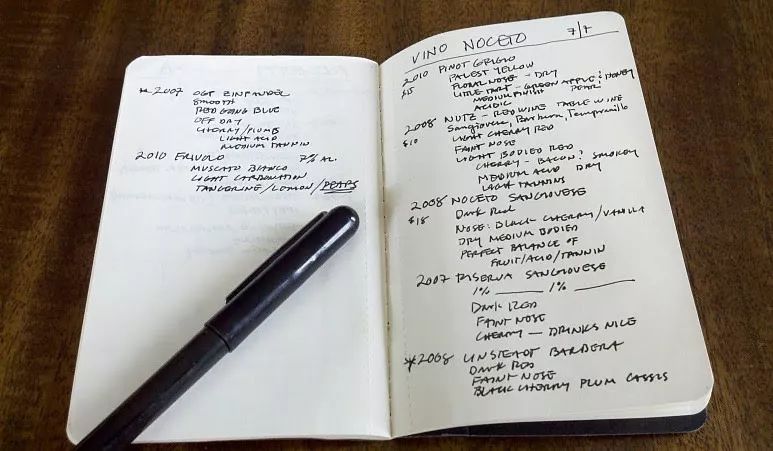 ** 2007 OGP ZINFANDEL
SMOOTH
RED GOING BLUE
OFF DRY
CHERRY/PLUMS
LIGHT ACID
MEDIUM TANNIN
2010 FRIVOLO 7% AL.
MUSCATO BIANCO
LIGHT CARBONATION
TANGERINE/LEMON/PEARS
VINO NOCETO 7/7
2010 PINOT GRIGIO
$15 PALEST YELLOW
FLORAL NOSE - DRY
LITTLE TART - GREEN APPLE? HONEY
MEDIUM FINISH PEAR?
ACIDIC
2008 NUTZ - RED WINE TABLE WINE
Sangiovese, Barbera, Tempranillo
$10 LIGHT CHERRY RED
FAINT NOSE
LIGHT BODIED RED
CHERRY - BACON? SMOKEY
MEDIUM ACID DRY
LIGHT TANNINS
2008 NOCETO SANGIOVESE
$18 Dark Red
NOSE: BLACK CHERRY/VANILLA
DRY MEDIUM BODIED
PERFECT BALANCE OF
FRUIT/ACID/TANNIN
2007 RISERVA SANGIOVESE
1% ____ 1% ____
DARK RED
FAINT NOSE
CHERRY — DRINKS NICE
*2008 LINSTEADT BARBERA
DARK RED
FAINT NOSE
BLACK CHERRY PLUM CASSIS